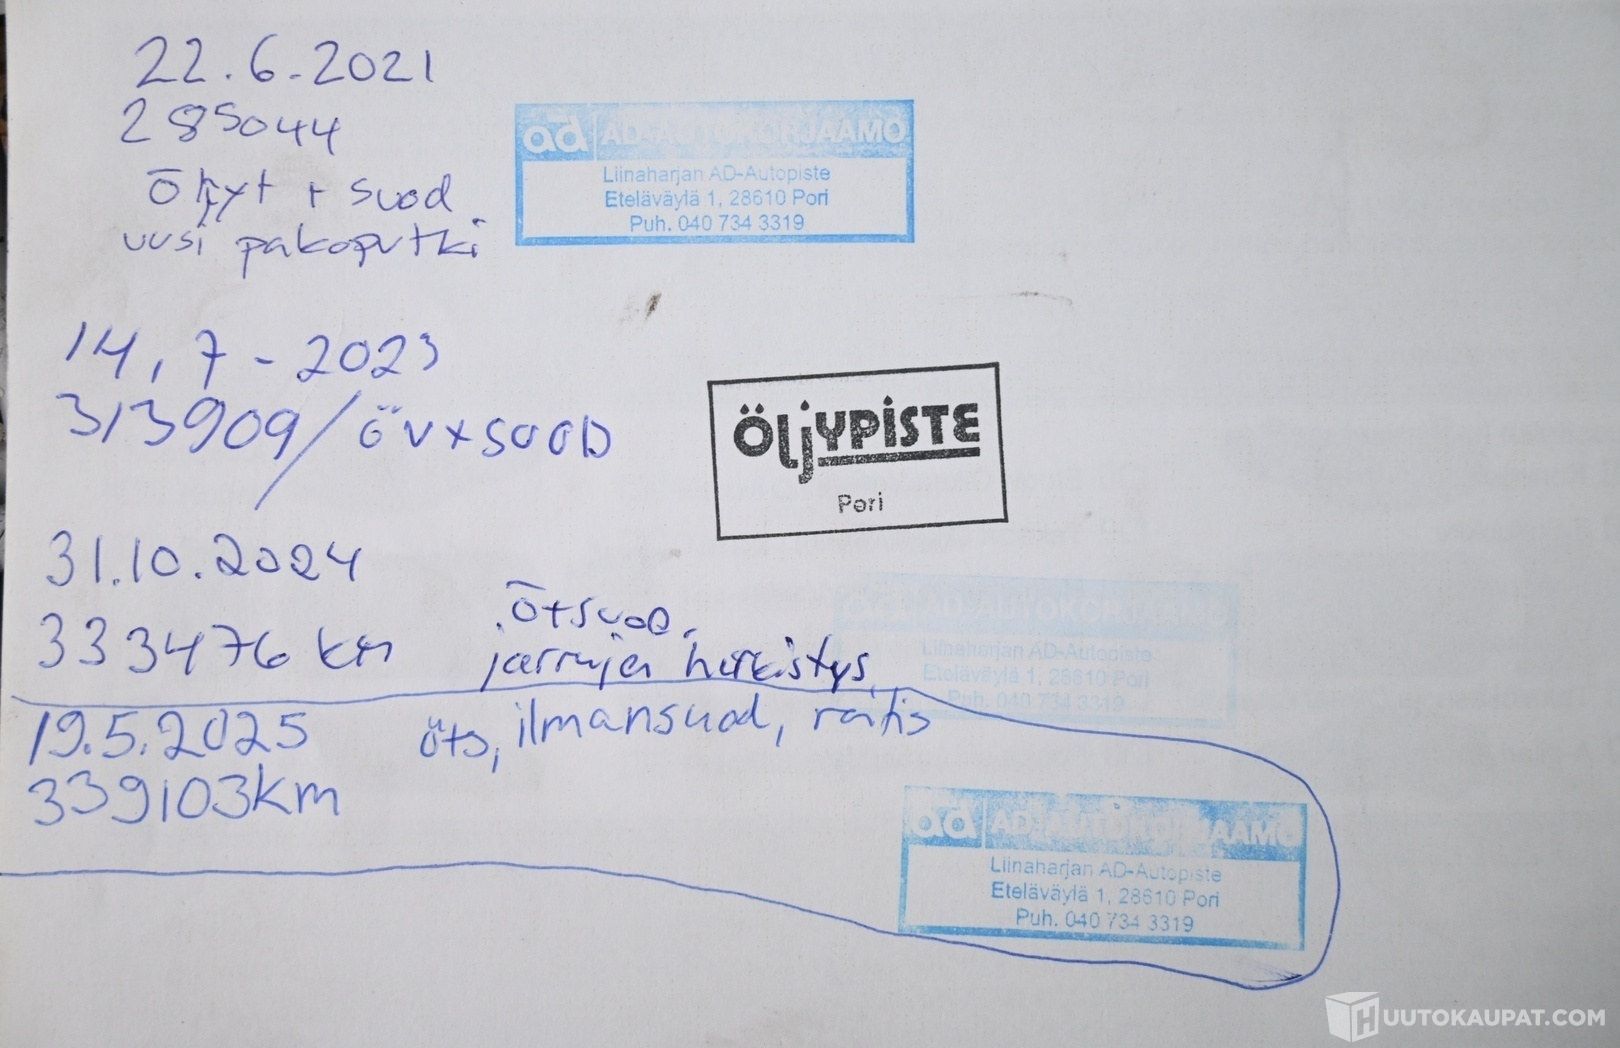 22.6.2021
285044
Öljyt + suod
uusi pakoputki
ad AD-AUTOKORJAAMO
Liinaharjan AD-Autopiste
Eteläväylä 1, 28610 Pori
Puh. 040 734 3319
14.7-2023
313909/ öv+SUOD
ÖLJYPISTE
Pori
31.10.2024
333476 km
ö+suod.
jarrujen herkistys
AD-AUTOKORJAAMO
Liinaharjan AD-Autopiste
Eteläväylä 1, 28610 Pori
Puh. 040 734 3319
19.5.2025
öts, ilmansuod, ratis
339103km
ad AD-AUTOKORJAAMO
Liinaharjan AD-Autopiste
Eteläväylä 1, 28610 Pori
Puh. 040 734 3319
HUUTOKAUPAT.COM